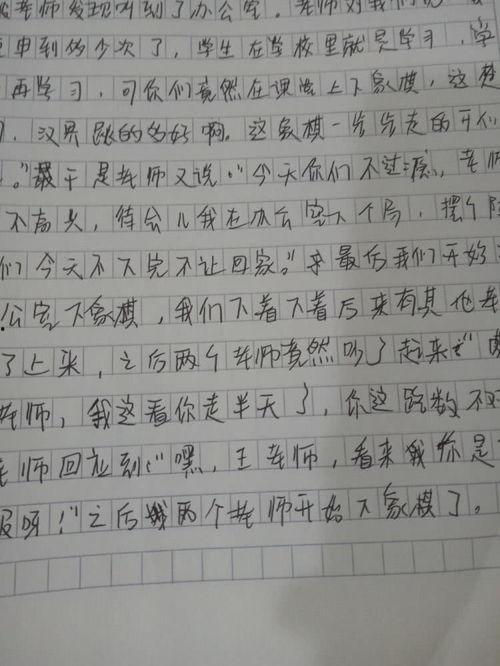 被老师发现叫到了办公室。老师对我们说
申到的多少次了，学生在学校里就是学习，学
再学习，可你们竟然在课堂上下象棋，这楚
汉界跳的多好啊。这象棋一步步走的
。"于是老师又说："今天你们不过瘾，老师
不高兴，待会儿我在办公室下个局，摆个阵
们今天不下完不让回家。"最后我们开始
公室下象棋，我们下着下着后来有其他老
了上来，之后两个老师竟然吵了起来："
老师，我这看你走半天了，你这路数不对
老师回应到："嘿，王老师，看来你是
服呀！"之后两个老师开始下象棋了。